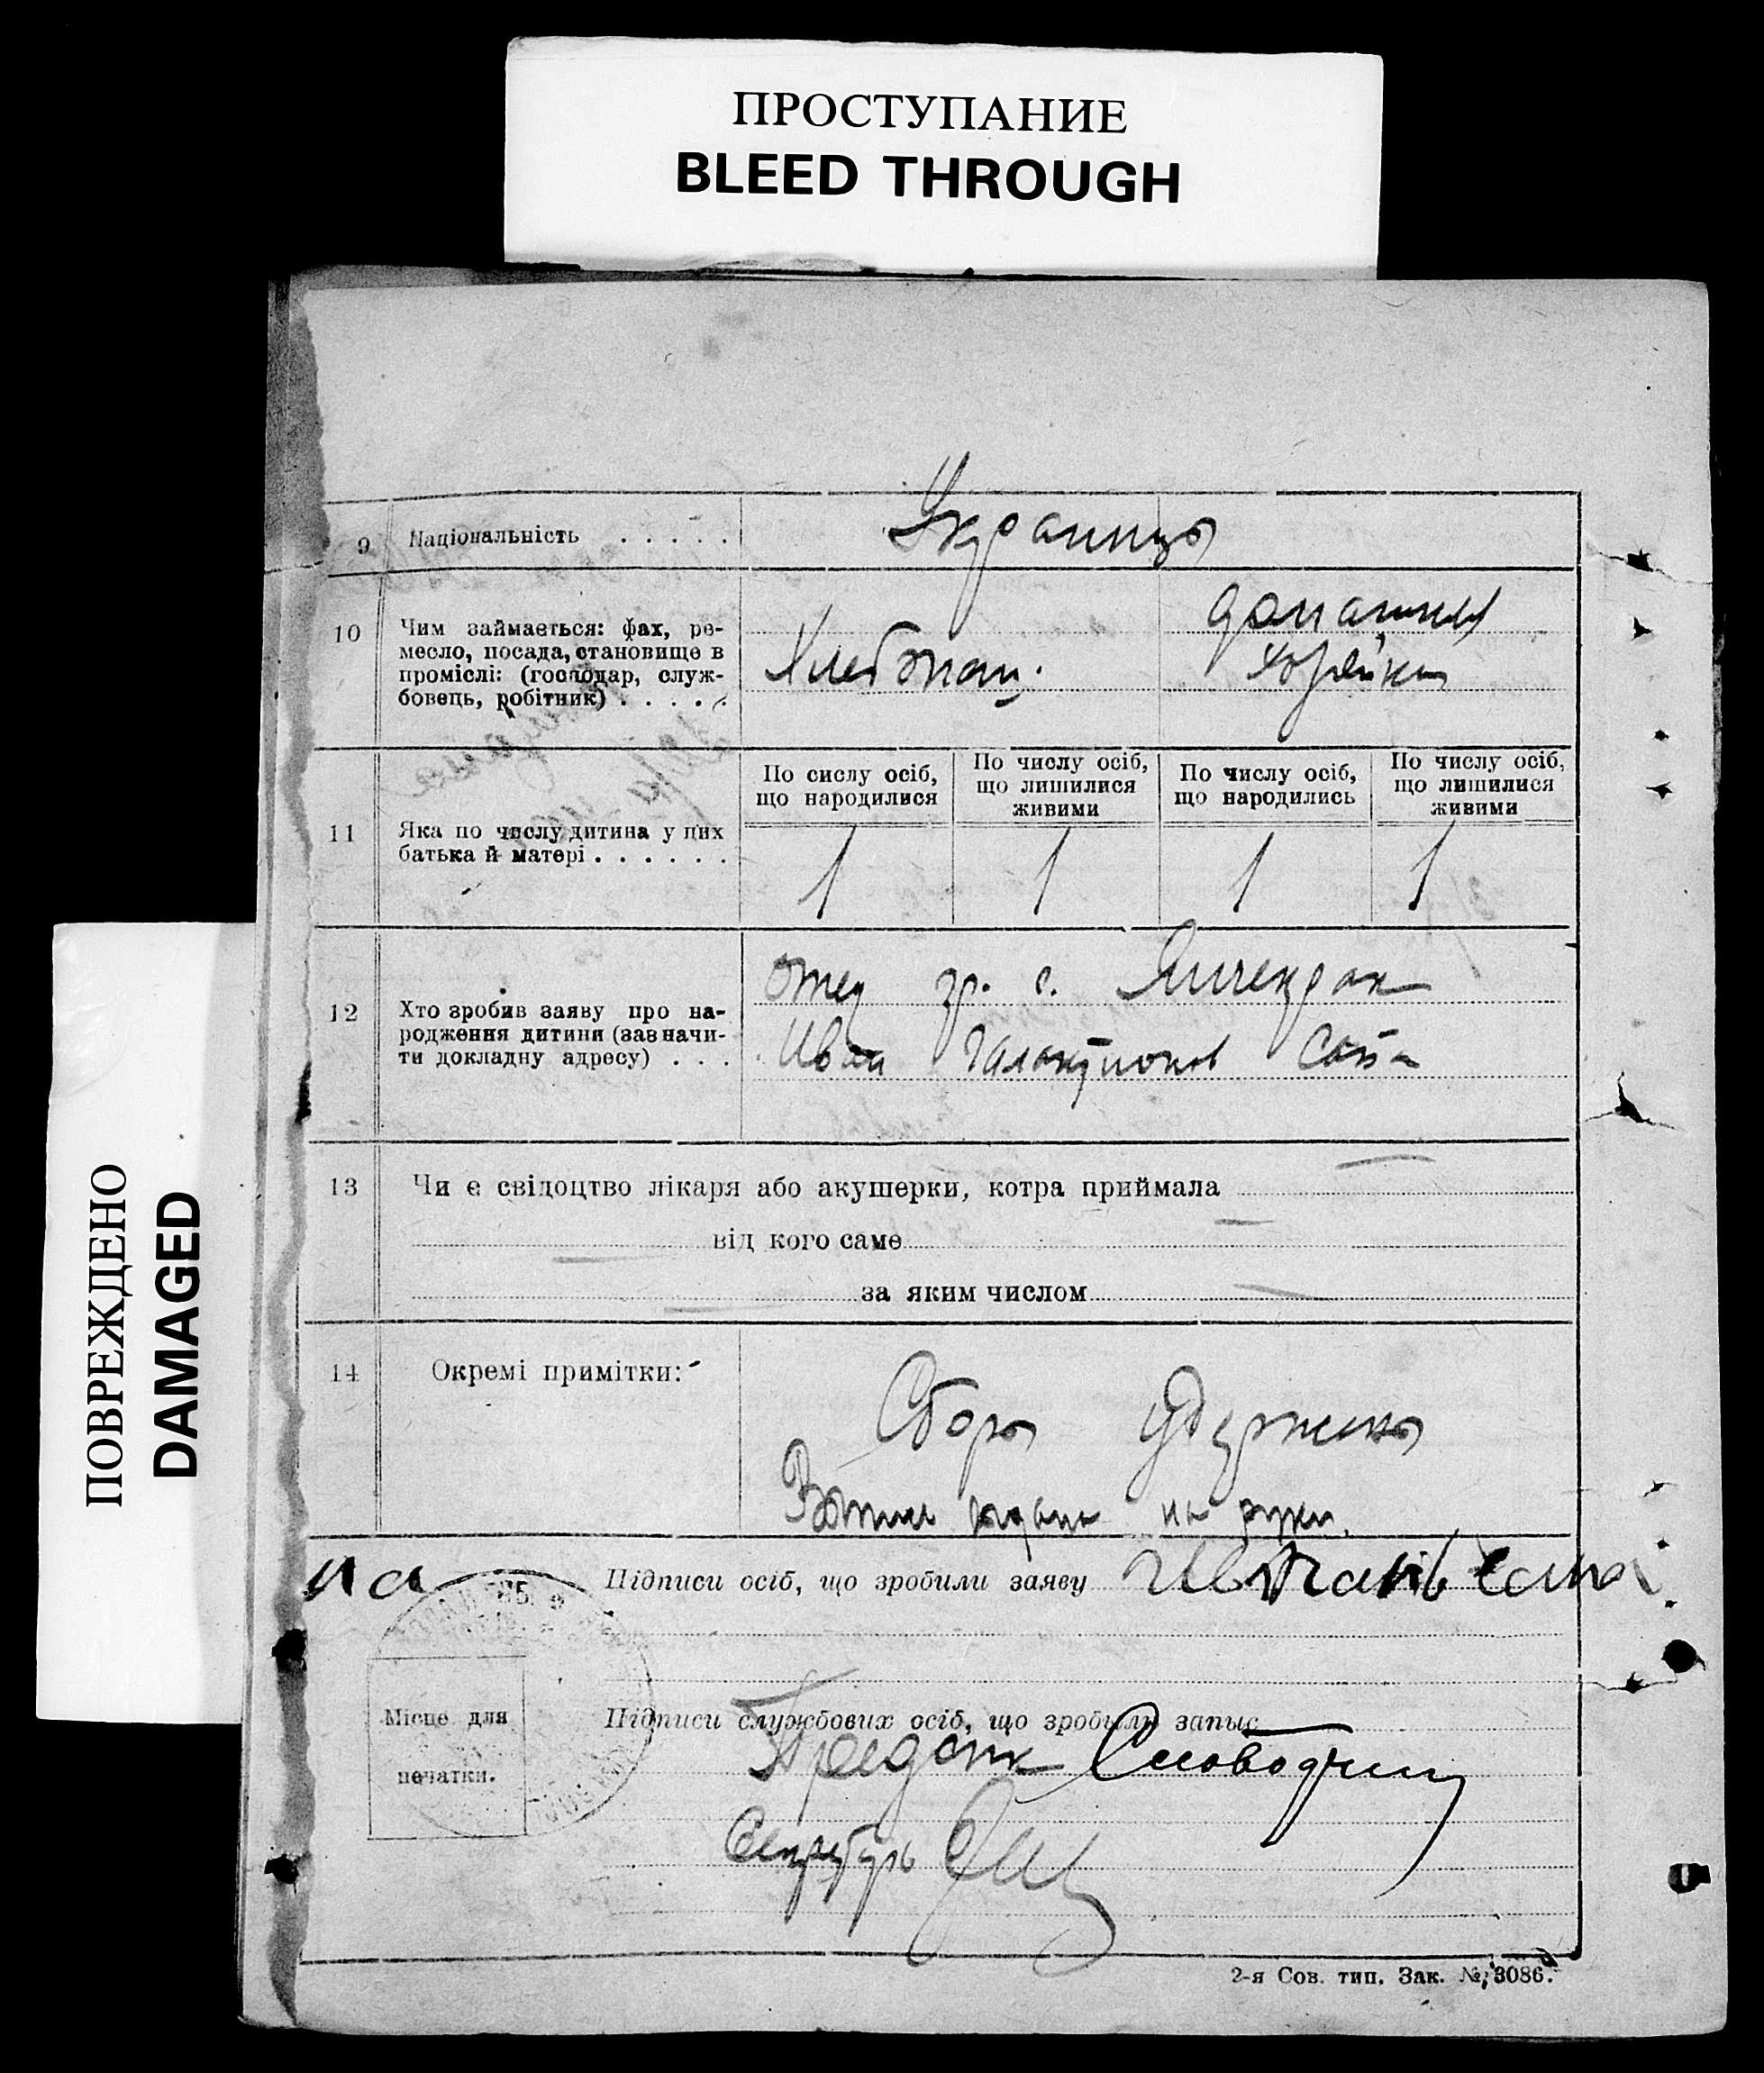 ПРОСТУПАНИЕ
BLEED THROUGH
ПОВРЕЖДЕНО
DAMAGED
9 Національність . . . . . Украинцы
10 Чим займається: фах, ре-
месло, посада, становище в
проміслі: (господар, служ-
бовець, робітник) . . . . .
Хлебопаш.
домашняя
хозяйка
11 Яка по числу дитина у цих
батька й матері . . . . . .
По сислу осіб,
що народилися
По числу осіб,
що лишилися
живими
По числу осіб,
що народились
По числу осіб,
що лишилися
живими
1 1 1 1
12 Хто зробив заяву про на-
родження дитини (зазначи-
ти докладну адресу) . . .
отец гр. с.
Иван Галактионов
13 Чи є свідоцтво лікаря або акушерки, котра приймала
від кого саме
за яким числом
14 Окремі примітки:
Сбор удержаны
на руки.
Підписи осіб, що зробили заяву
Місце для
печатки.
Підписи службових осіб, що зробыли запыс
Секретарь
2-я Сов. тип. Зак. № 3086.